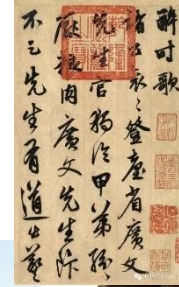 醉時歌
諸公衮衮登臺省廣文
先生官獨冷甲第紛
厭粱肉廣文先生飯
不足先生有道出羲